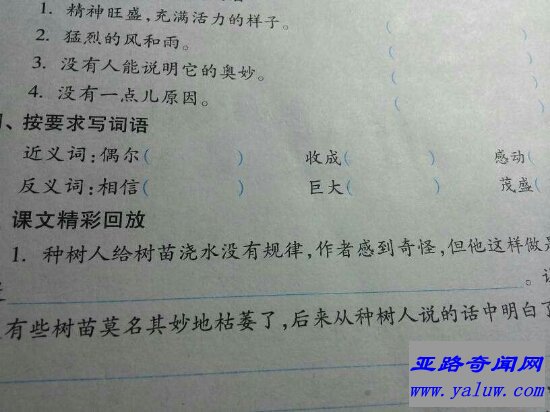 1. 精神旺盛,充满活力的样子。 ( )
2. 猛烈的风和雨。 ( )
3. 没有人能说明它的奥妙。 ( )
4. 没有一点儿原因。 ( )
、按要求写词语
近义词:偶尔( ) 收成( ) 感动(
反义词:相信( ) 巨大( ) 茂盛(
课文精彩回放
1. 种树人给树苗浇水没有规律,作者感到奇怪,但他这样做是
。
有些树苗莫名其妙地枯萎了,后来从种树人说的话中明白了
亚路奇闻网
www.yaluw.com